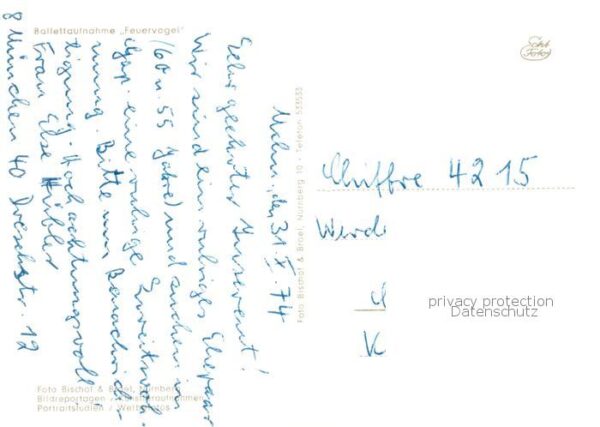 Ballettaufnahme „Feuervogel"
Echt Foto
Mchn., den 31.X.74
Sehr geehrter Inserent!
Wir sind ein ruhiges Ehepaar
(60 u. 55 Jahre) und suchen im
eine ruhige Zweitwoh-
nung. Bitte um Benachrich-
tigung. Hochachtungsvoll
Frau Else Hübler
8 München 40 Dreschstr. 12
Foto Bischof & Broel, Nürnberg 10 · Telefon: 533535
Chiffre 4215
Werd
4
K
privacy protection
Datenschutz
Foto Bischof & Broel, Nürnberg
Bildreportagen / Künstleraufnahmen
Portraitstudien / Werbefotos